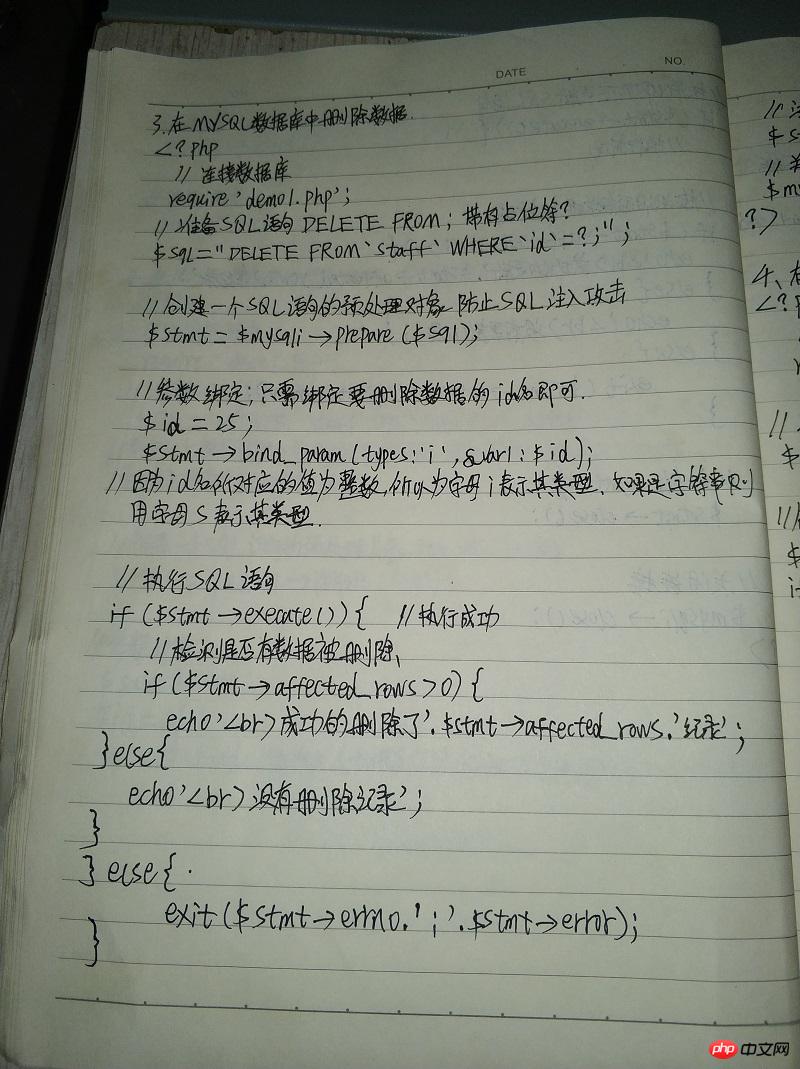 DATE
NO.
3.在MYSQL数据库中删除数据.
<?php
// 连接数据库
require 'demo1.php';
// 准备SQL语句 DELETE FROM; 带有占位符?
$sql="DELETE FROM `staff` WHERE `id`=?;";
// 创建一个SQL语句的预处理对象 防止SQL注入攻击
$stmt = $mysqli→prepare($sql);
// 参数绑定; 只需绑定要删除数据的id名即可.
$id = 25;
$stmt→bind_param(types:'i', &var1:$id);
// 因为id名所对应的值为整数,所以为字母i表示其类型、如果是字符串则
用字母s表示其类型.
// 执行SQL语句
if ($stmt→execute()) { // 执行成功
// 检测是否有数据被删除、
if ($stmt→affected_rows>0) {
echo'<br>成功的删除了'.$stmt→affected_rows.'纪录';
}else{
echo'<br>没有删除纪录';
}
} else{
exit($stmt→errno.':'.$stmt→error);
}
//
$s
//
$my
?>
4、在
<?
//
$
//
$
i
php 中文网